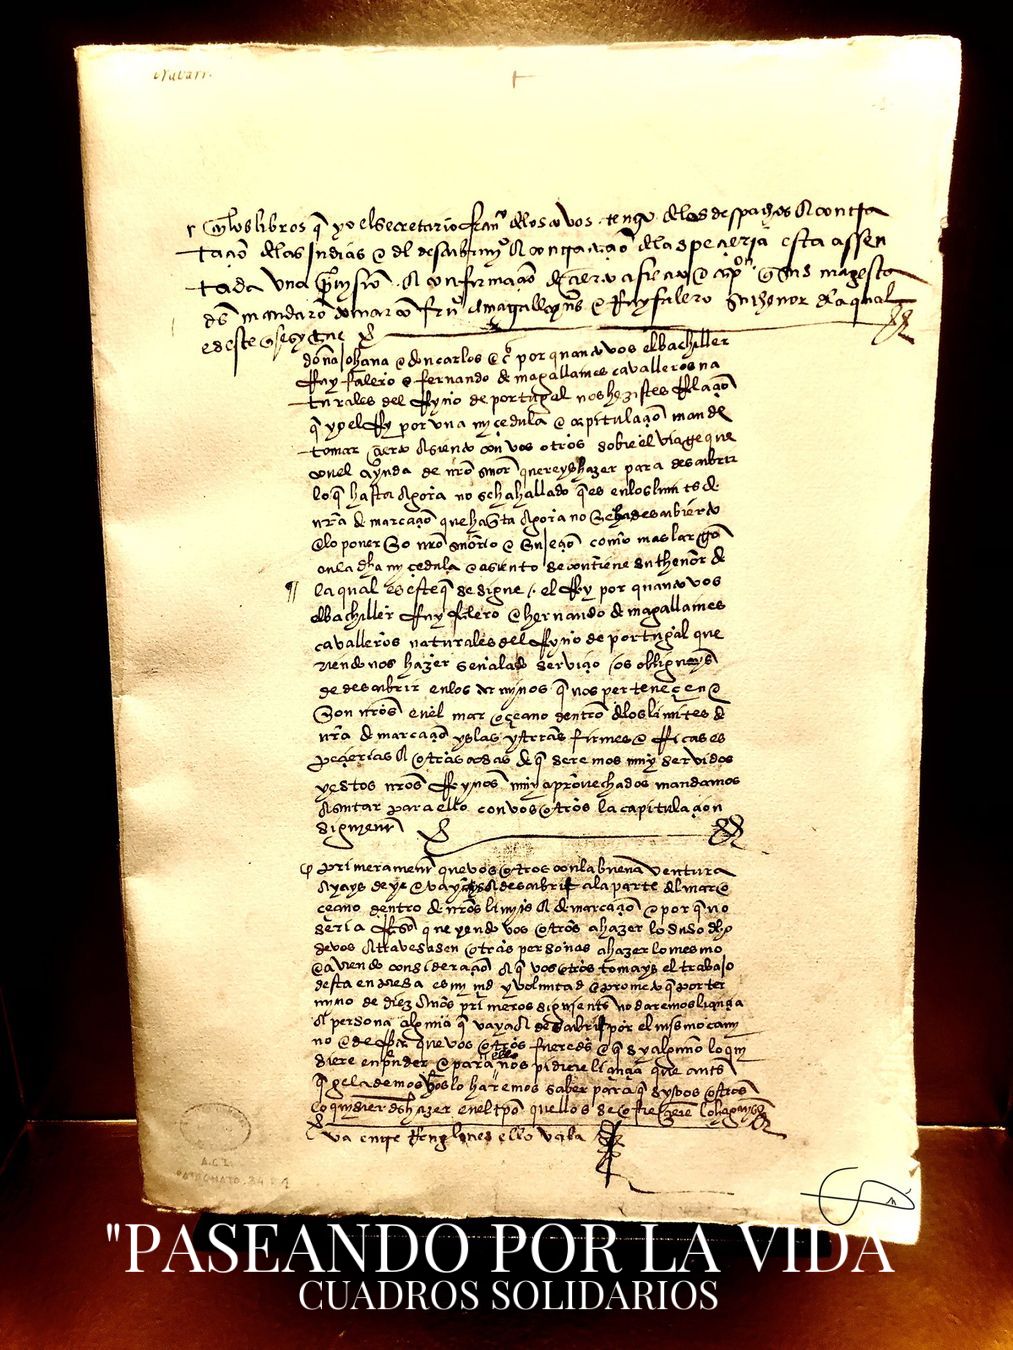 en los libros q̃ yo el secretario fran.co delos covos tengo delos despachos dela contra
taçõ delas Indias e del descubrimyº e contrataçiõ dela especieria esta assen
tada una provysiõ e confirmaçiõ de çierto asiento e capon q̃ sus magesta
des mandarõ tomar cõ frnº de magallayns e Ruy falero su thenor dela qual
e deste q̃ se sygue
doña Johana e don carlos e c.ª por quanto vos el bachiller
Ruy falero e fernando de magallaines cavalleros na
turales del Ryno de portugal nos hezistes Relaçõ
q̃ yo el Rey por una my çedula e capitulaçõ mande
tomar çierto asiento con vos otros sobre el viage que
con el ayuda de nrõ señor quereys hazer para descubrir
lo q̃ hasta agora no se ha hallado que es en los limites de
nrã demarcaçõ que hasta agora no se ha descubierto
e lo poner so nrõ señorio e sujeçõ como mas largo
en la dha my çedula e asiento se contiene su thenor de
la qual es este q̃ se sigue / . el Rey por quanto vos
el bachiller Ruy falero e hernando de magallaines
cavalleros naturales del Ryno de portugal que
riendo nos hazer señalado serviçio os obligays
de descubrir en los terminos q̃ nos perteneçen e
son nrõs en el mar oçeano dentro delos limites de
nrã demarcaçõ yslas y trras firmes e Ricas es
peçerias e otras cosas de q̃ seremos muy servidos
y estos nrõs Reynos muy aprovechados mandamos
asentar para ello con vos otros la capitulaçion
siguiente
primeramente que vos otros con la buena ventura
ayays de yr e vayays a descubrir a la parte del mar o
çeano dentro de nrõs limites e demarcaçõ e por q̃ no
seria Razõ que yendo vos otros a hazer lo suso dho
se vos atravesasen otras personas a hazer lo mesmo
e aviendo consideraçõ a q̃ vos otros tomays el trabajo
desta enpresa es my md y voluntad e prometo q̃ por ter
mino de diez años primeros siguientes no daremos liçençia
a persona alguna q̃ vaya a descubrir por el mismo cami
no e derrota que vos otros fueredes e q̃ sy alguno lo qui
siere enprender e para ello nos pidiere liçençia que antes
q̃ gela demos vos lo haremos saber para q̃ sy vos otros
lo quisierdes hazer en el tpõ que ellos se ofreçieren lo hagays
va entre Renglones ello vala
A.G.I.
PATRONATO. 34 R 1
"PASEANDO POR LA VIDA
CUADROS SOLIDARIOS